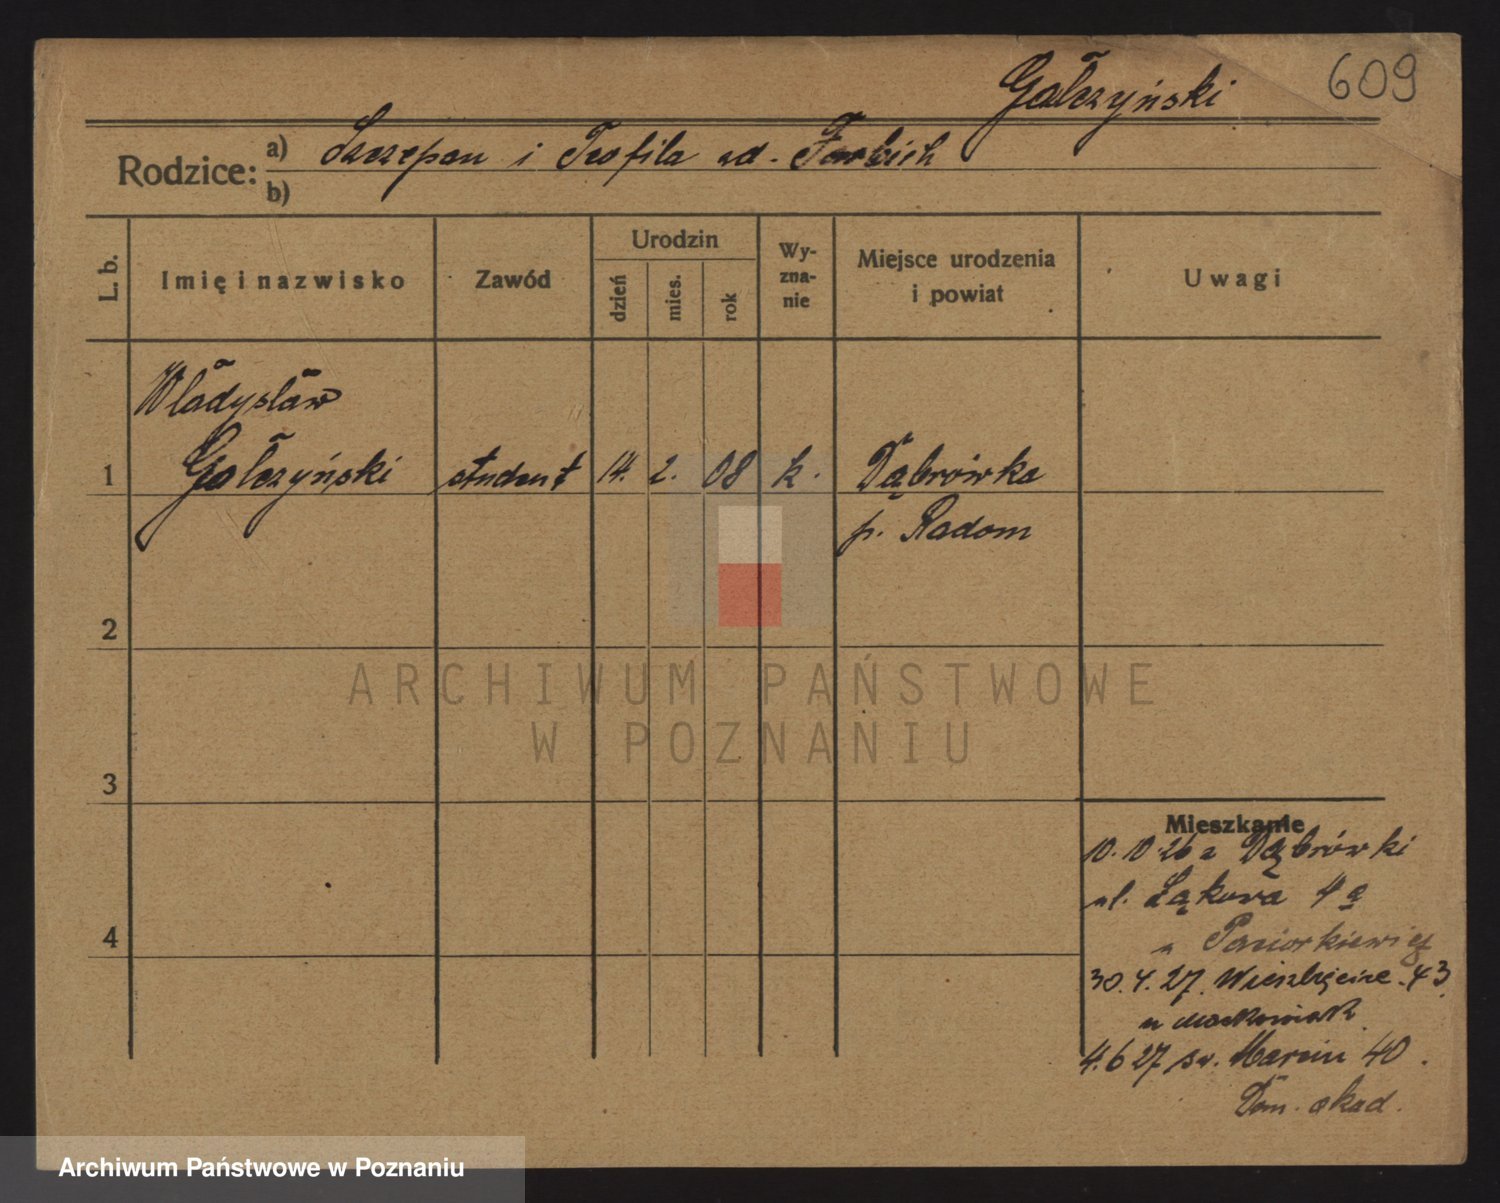 Gałczyński 609
Rodzice: a) Szczepan i Teofila zd. Farbich
b)
L. b. Imię i nazwisko Zawód Urodzin dzień mies. rok Wyznanie Miejsce urodzenia i powiat Uwagi
Władysław
1 Gałczyński student 14. 2. 08 k. Dąbrówka
p. Radom
2
ARCHIWUM PAŃSTWOWE
W POZNANIU
3
Mieszkanie
10.10.26 z Dąbrówki
ul. Łąkowa 4a
u
4
30.4.27. Wierzbięcice 43
u Maćkowiak
4.6 27 św. Marcin 40.
Dom. akad.
Archiwum Państwowe w Poznaniu